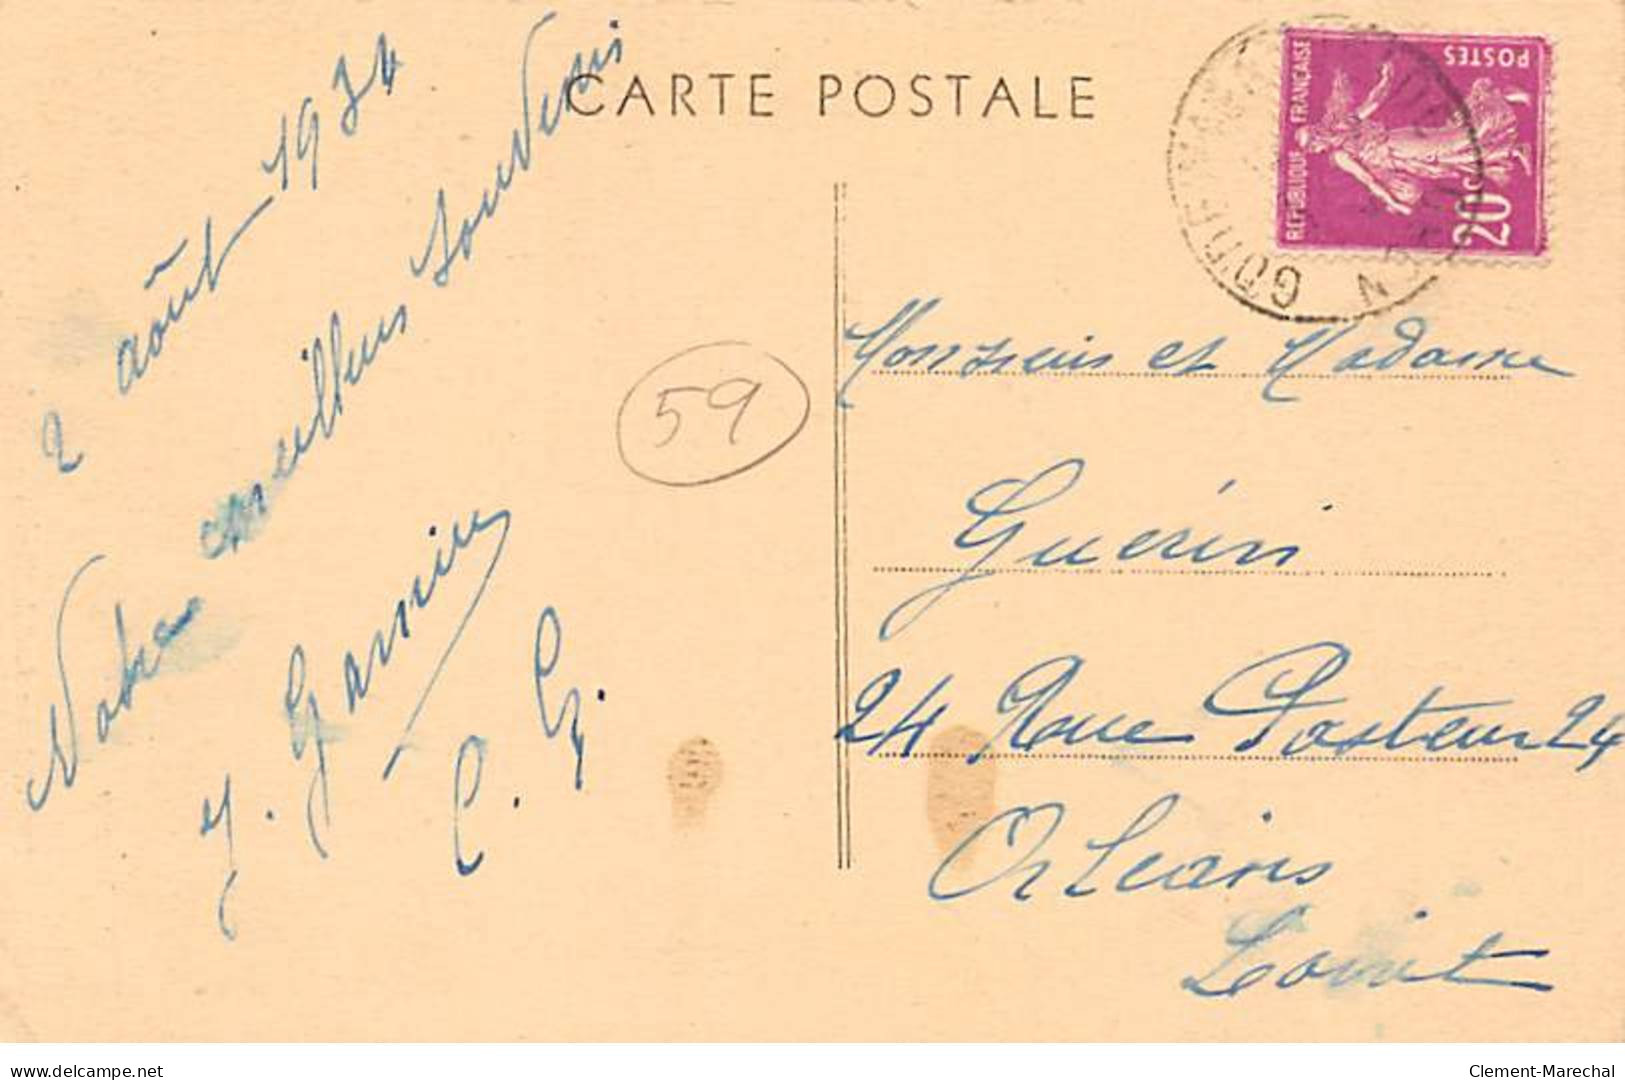 CARTE POSTALE
2 août 1934
Notre meilleurs Souvenirs
Garnier
C. G.
59
REPUBLIQUE FRANÇAISE
POSTES
20c
Monsieur et Madame
Guérin
24 Rue Pasteur 24
Orléans
Loiret
Clement-Marechal